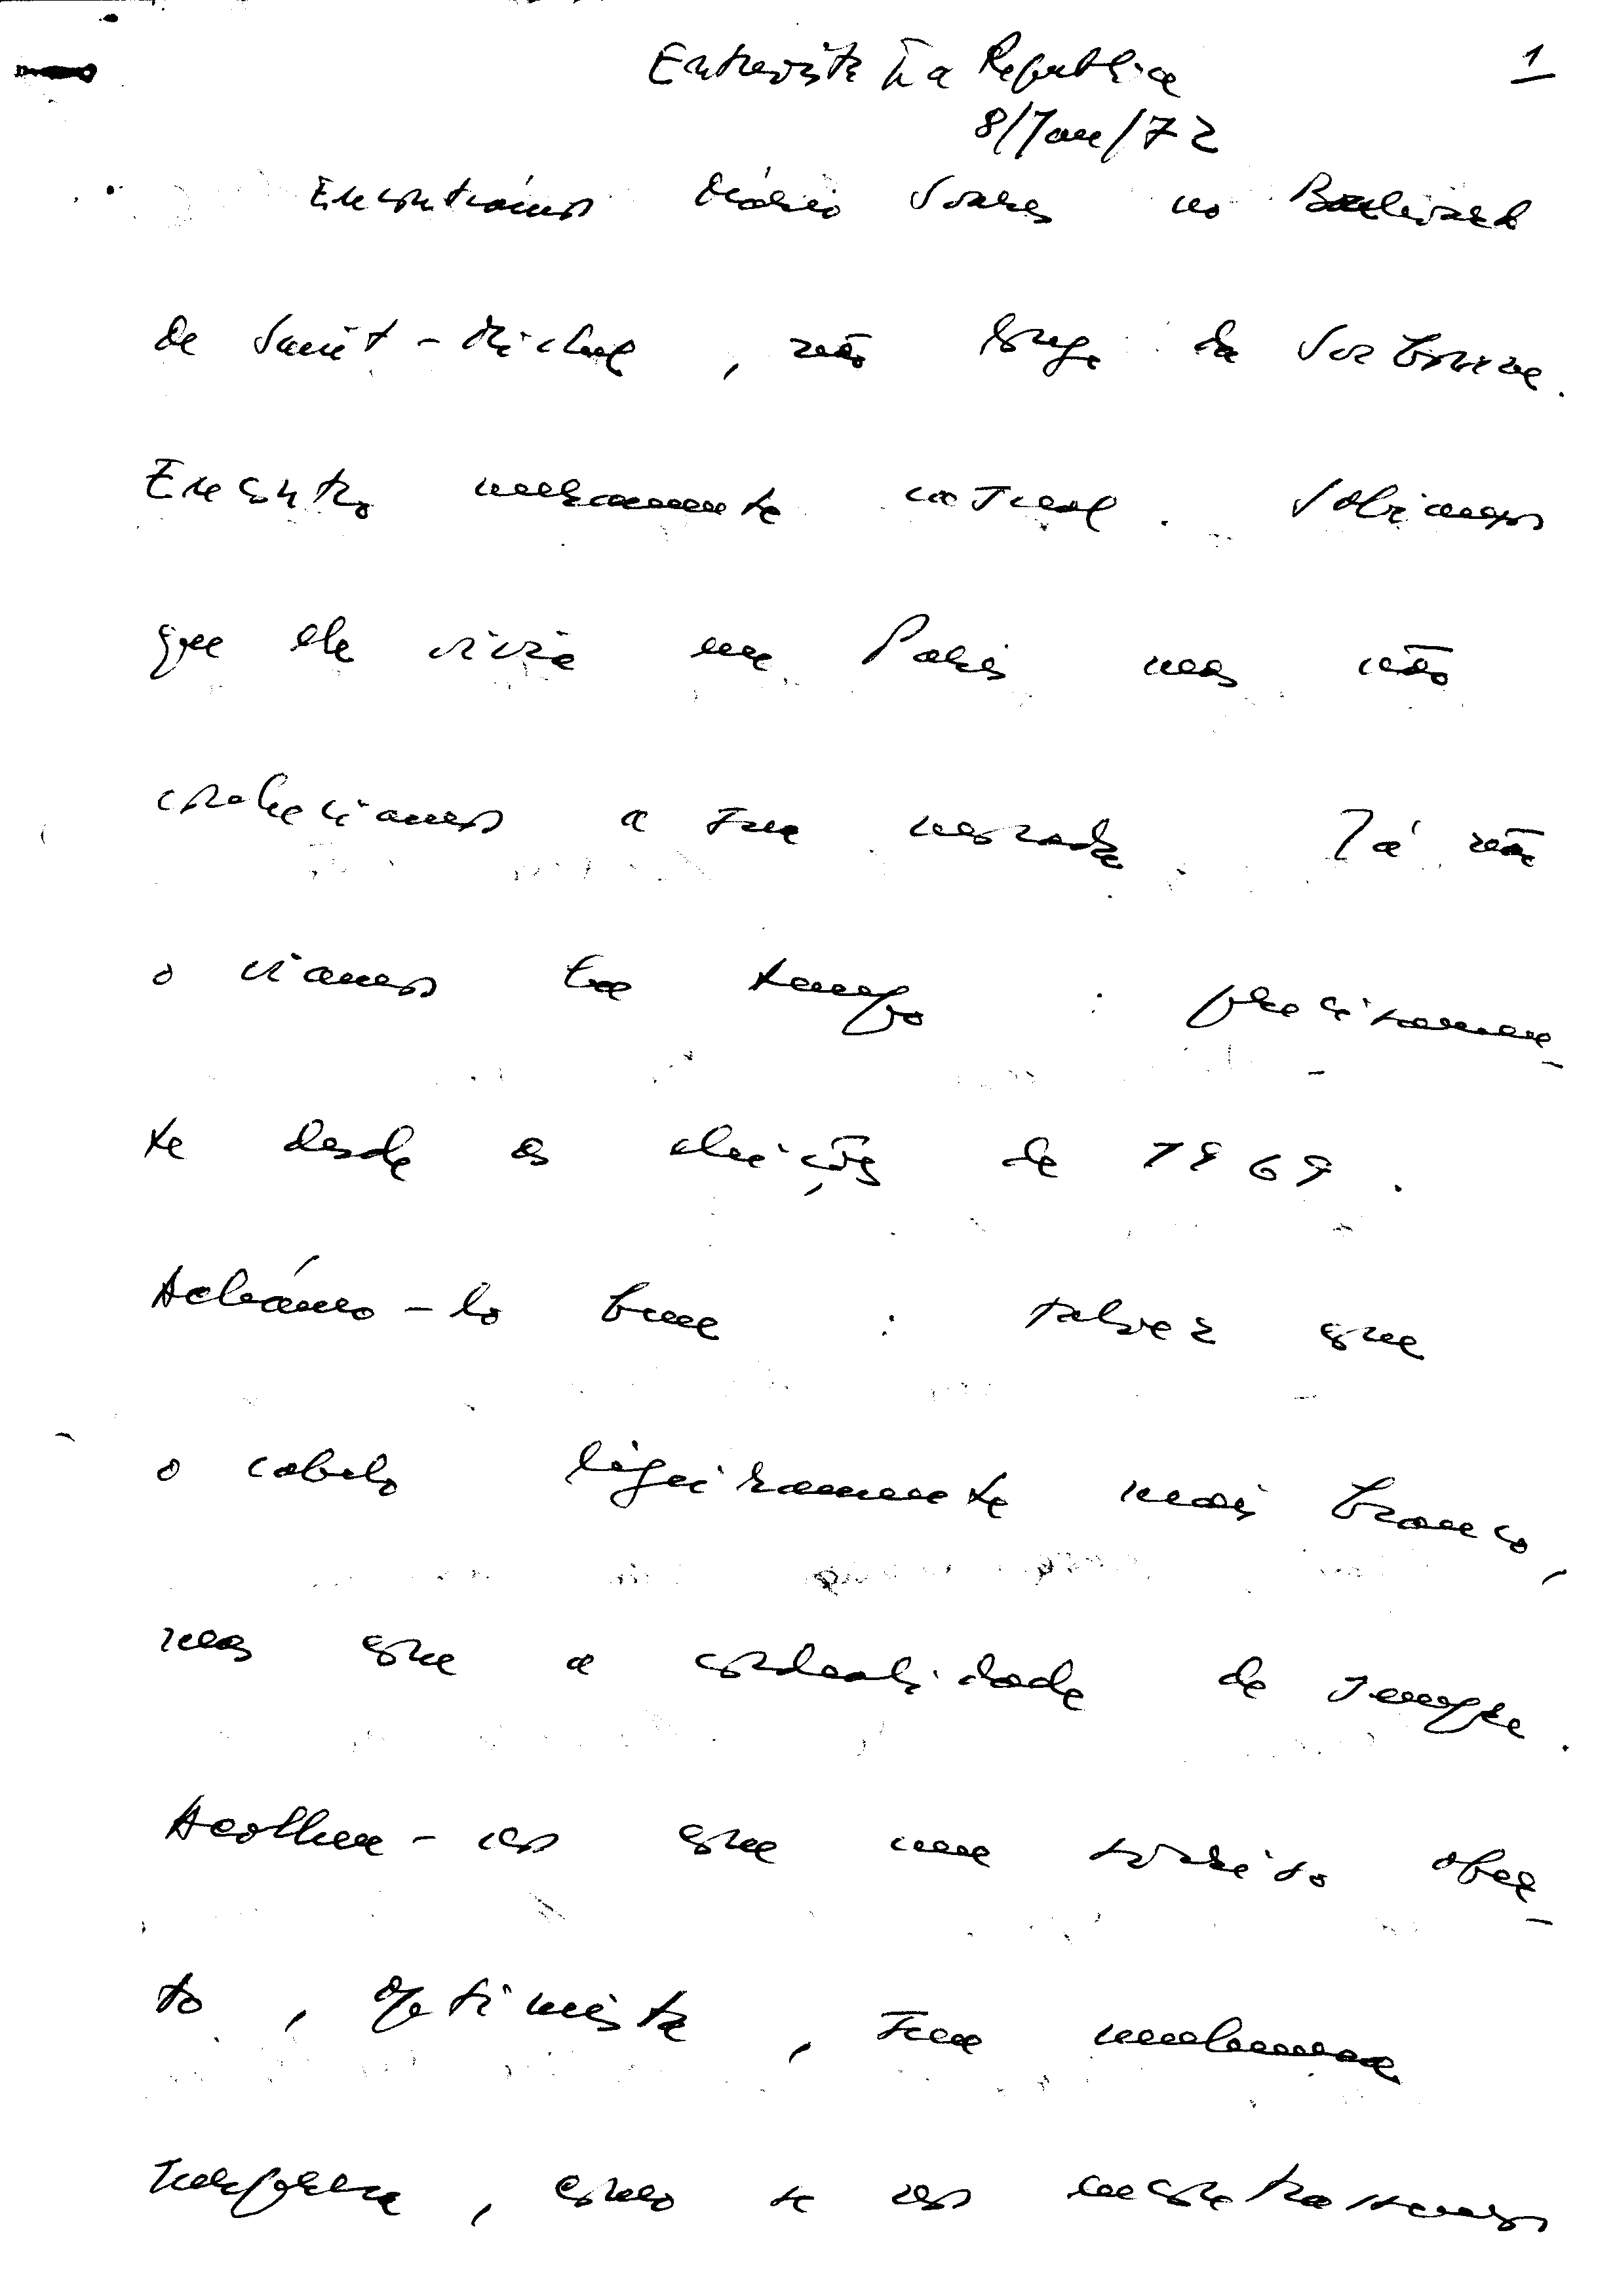 Entrevista à República
1
8/Jan/72
Encontrámos Mário Soares no Boulevard
de Saint-Michel, não longe da Sorbonne.
Encontro meramente casual. Sabíamos
que ele vivia em Paris mas não
conhecíamos a sua morada. Já não
o víamos há tempo : precisamen-
te desde as eleições de 1969.
Achámo-lo bem : talvez com
o cabelo ligeiramente mais branco,
mas com a cordealidade de sempre.
Acolheu-nos com um sorriso aber-
to, optimista, sem nenhuma
surpresa, como se nos encontrássemos